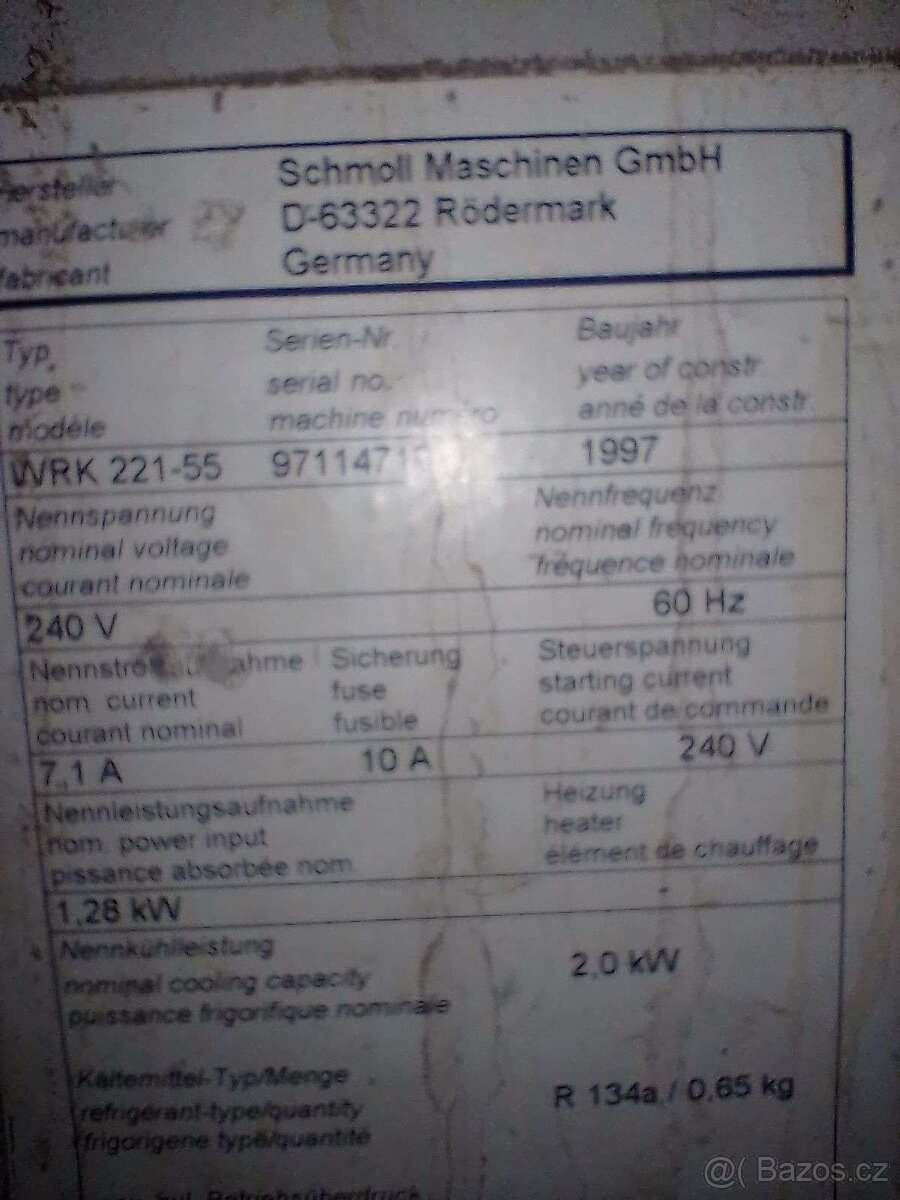 Hersteller
manufacturer
fabricant
Schmoll Maschinen GmbH
D-63322 Rödermark
Germany
Typ.
type
modéle
Serien-Nr.
serial no.
machine numéro
Baujahr
year of constr.
anné de la constr.
WRK 221-55
1997
Nennspannung
nominal voltage
courant nominale
Nennfrequenz
nominal frequency
fréquence nominale
240 V
60 Hz
nom. current
courant nominal
Sicherung
fuse
fusible
Steuerspannung
starting current
courant de commande
7,1 A
10 A
240 V
Nennleistungsaufnahme
nom. power input
pissance absorbée nom.
Heizung
heater
élément de chauffage
1,28 kW
Nennkühlleistung
nominal cooling capacity
puissance frigorifique nominale
2,0 kW
Kältemittel-Typ/Menge
refrigérant-type/quantity
frigorigene type/quantité
R 134a / 0,65 kg
Betriebsüberdruck
@( Bazos.cz